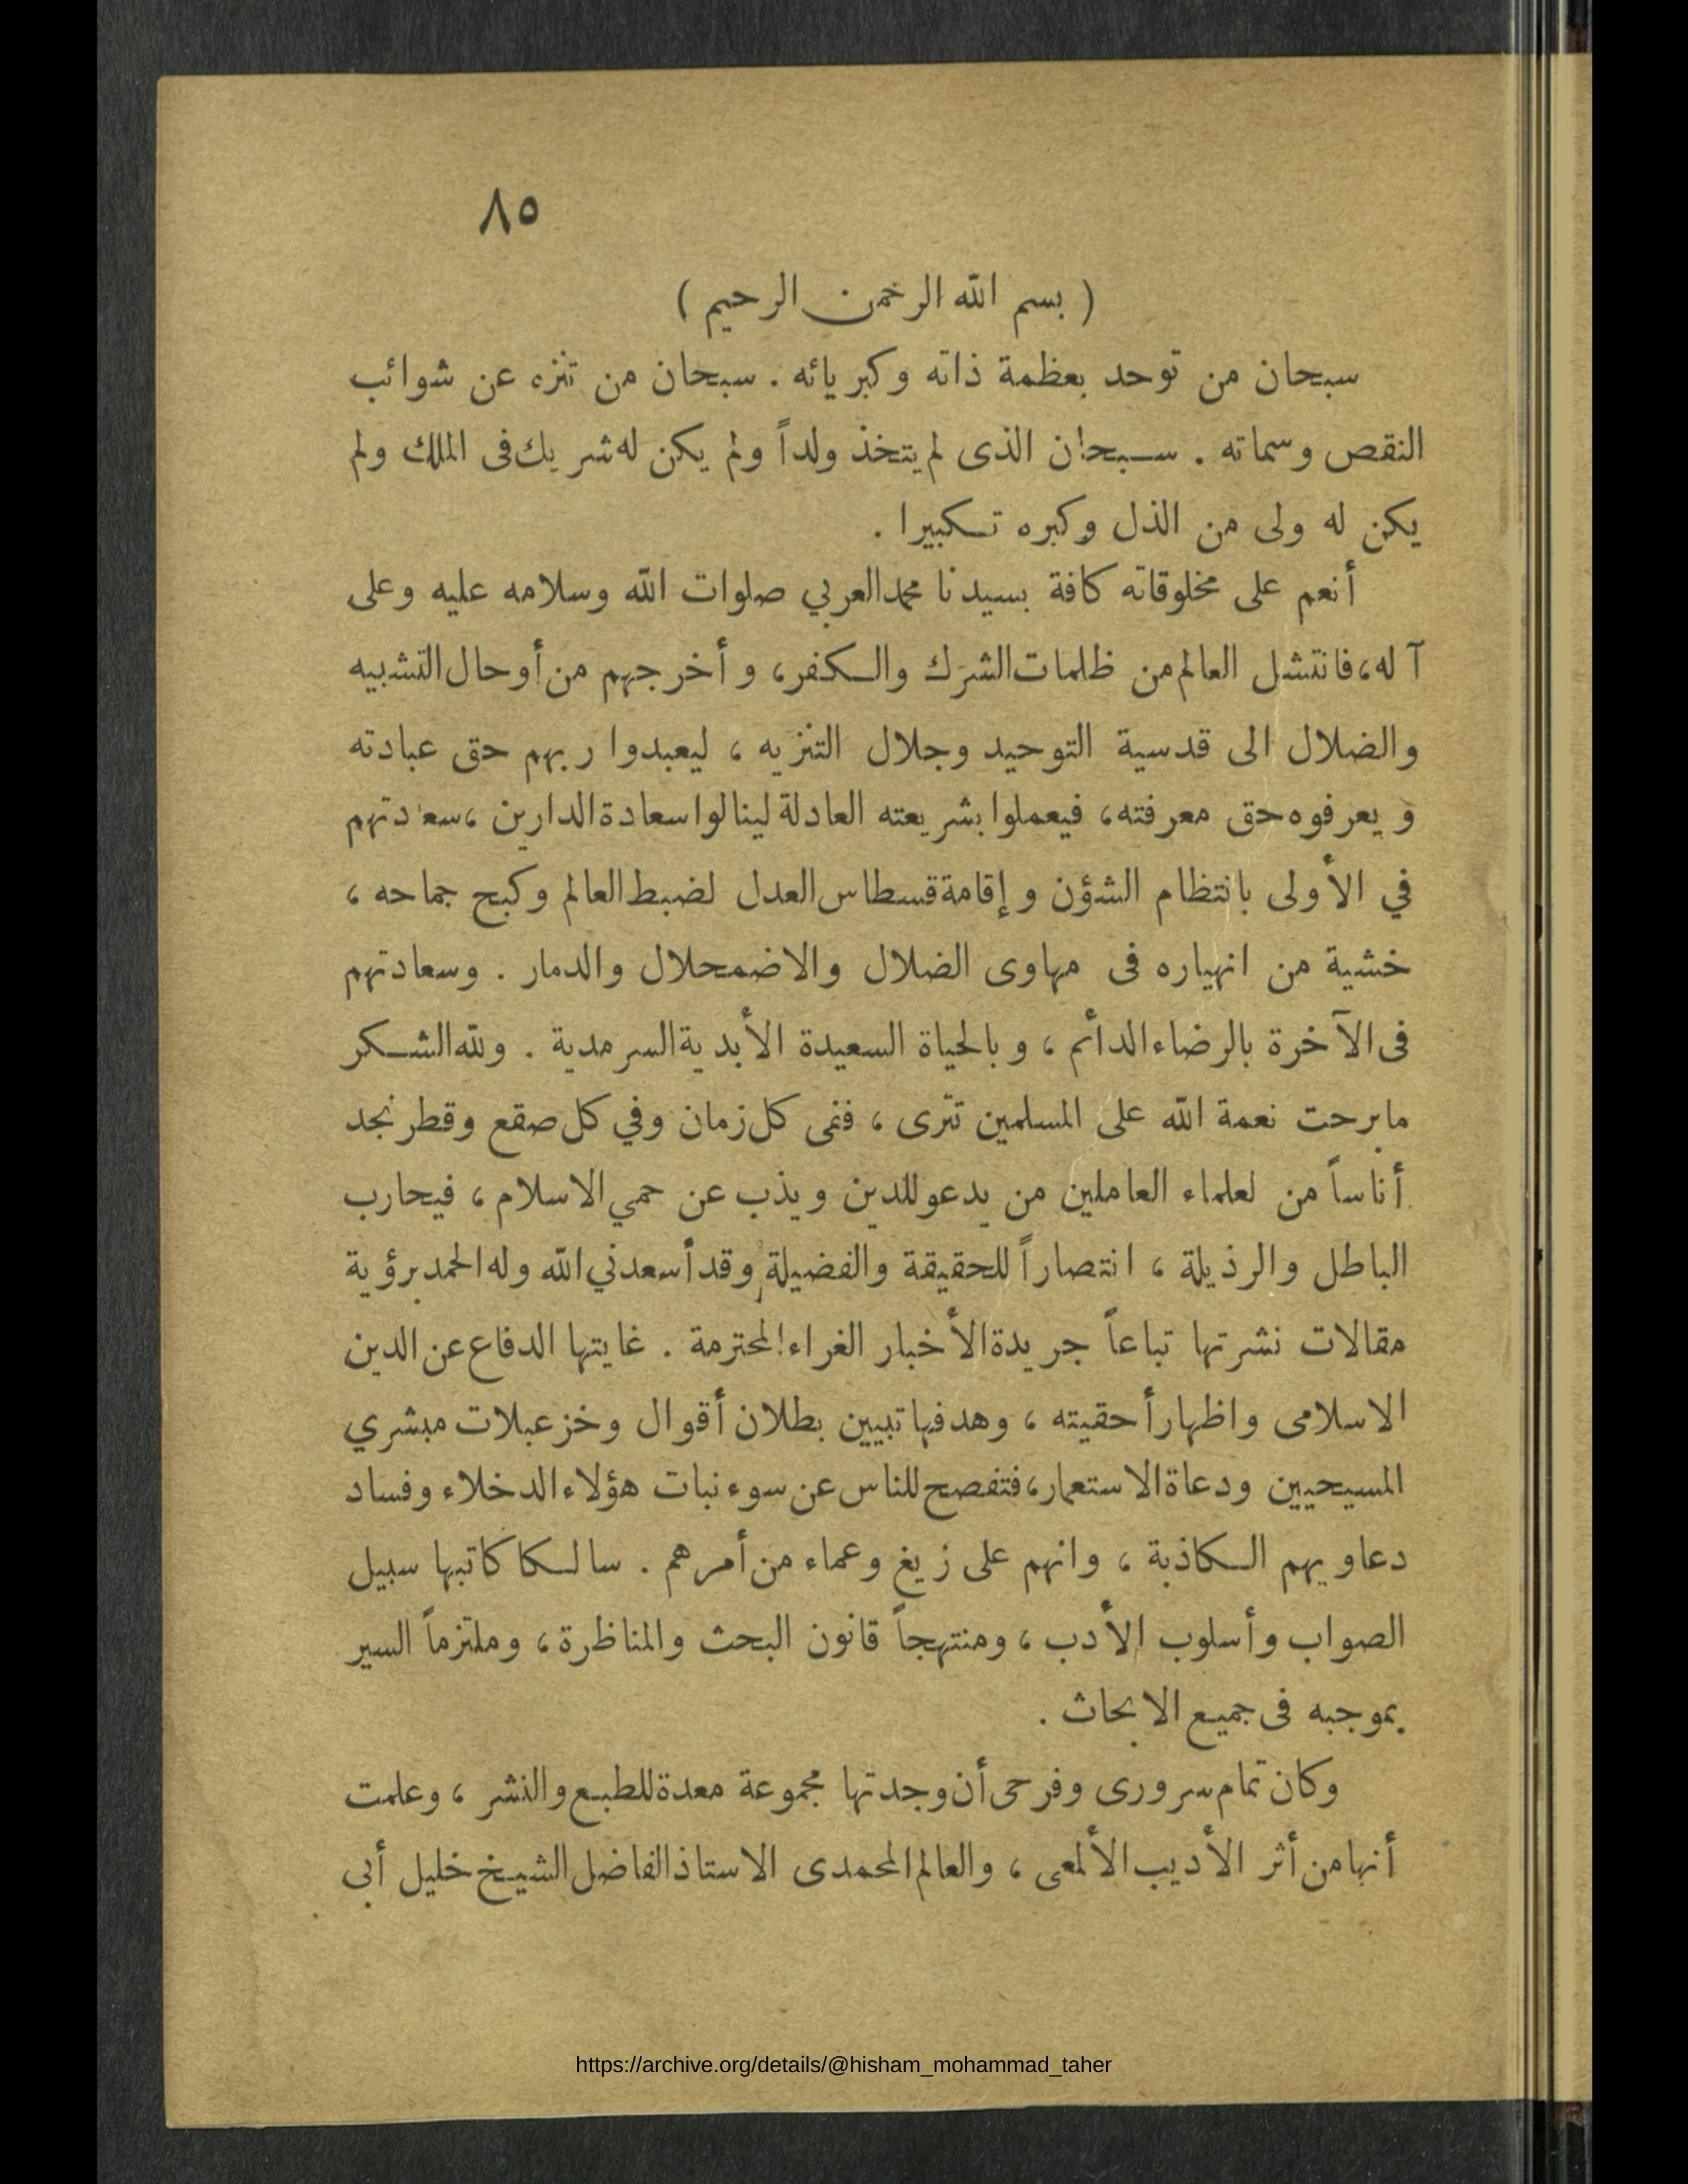 ٨٥
( بسم الله الرحمن الرحيم )
سبحان من توحد بعظمة ذاته وكبريائه . سبحان من تنزه عن شوائب
النقص وسماته . سبحان الذى لم يتخذ ولداً ولم يكن له شريك فى الملك ولم
يكن له ولى من الذل وكبره تكبيرا .
أنعم على مخلوقاته كافة بسيدنا محمد العربي صلوات الله وسلامه عليه وعلى
آله، فانتشل العالم من ظلمات الشرك والكفر، وأخرجهم من أوحال التشبيه
والضلال الى قدسية التوحيد وجلال التنزيه ، ليعبدوا ربهم حق عبادته
ويعرفوه حق معرفته، فيعملوا بشريعته العادلة لينالوا سعادة الدارين ، سعادتهم
في الأولى بانتظام الشؤن وإقامة قسطاس العدل لضبط العالم وكبح جماحه ،
خشية من انهياره فى مهاوى الضلال والاضمحلال والدمار . وسعادتهم
فى الآخرة بالرضاء الدائم ، وبالحياة السعيدة الأبدية السرمدية . ولله الشكر
ما برحت نعمة الله على المسلمين تترى ، ففى كل زمان وفي كل صقع وقطر نجد
أناساً من لعلماء العاملين من يدعو للدين ويذب عن حمي الاسلام ، فيحارب
الباطل والرذيلة ، انتصاراً للحقيقة والفضيلة وقد أسعدني الله وله الحمد برؤية
مقالات نشرتها تباعاً جريدة الأخبار الغراء المحترمة . غايتها الدفاع عن الدين
الاسلامى واظهار أحقيته ، وهدفها تبيين بطلان أقوال وخزعبلات مبشري
المسيحيين ودعاة الاستعمار، فتفصح للناس عن سوء نبات هؤلاء الدخلاء وفساد
دعاويهم الكاذبة ، وانهم على زيغ وعماء من أمرهم . سالكا كاتبها سبيل
الصواب وأسلوب الأدب ، ومنتهجاً قانون البحث والمناظرة ، وملتزماً السير
بموجبه فى جميع الابحاث .
وكان تمام سرورى وفرحى أن وجدتها مجموعة معدة للطبع والنشر ، وعلمت
أنها من أثر الأديب الألمعى ، والعالم المحمدى الاستاذ الفاضل الشيخ خليل أبى
https://archive.org/details/@hisham_mohammad_taher